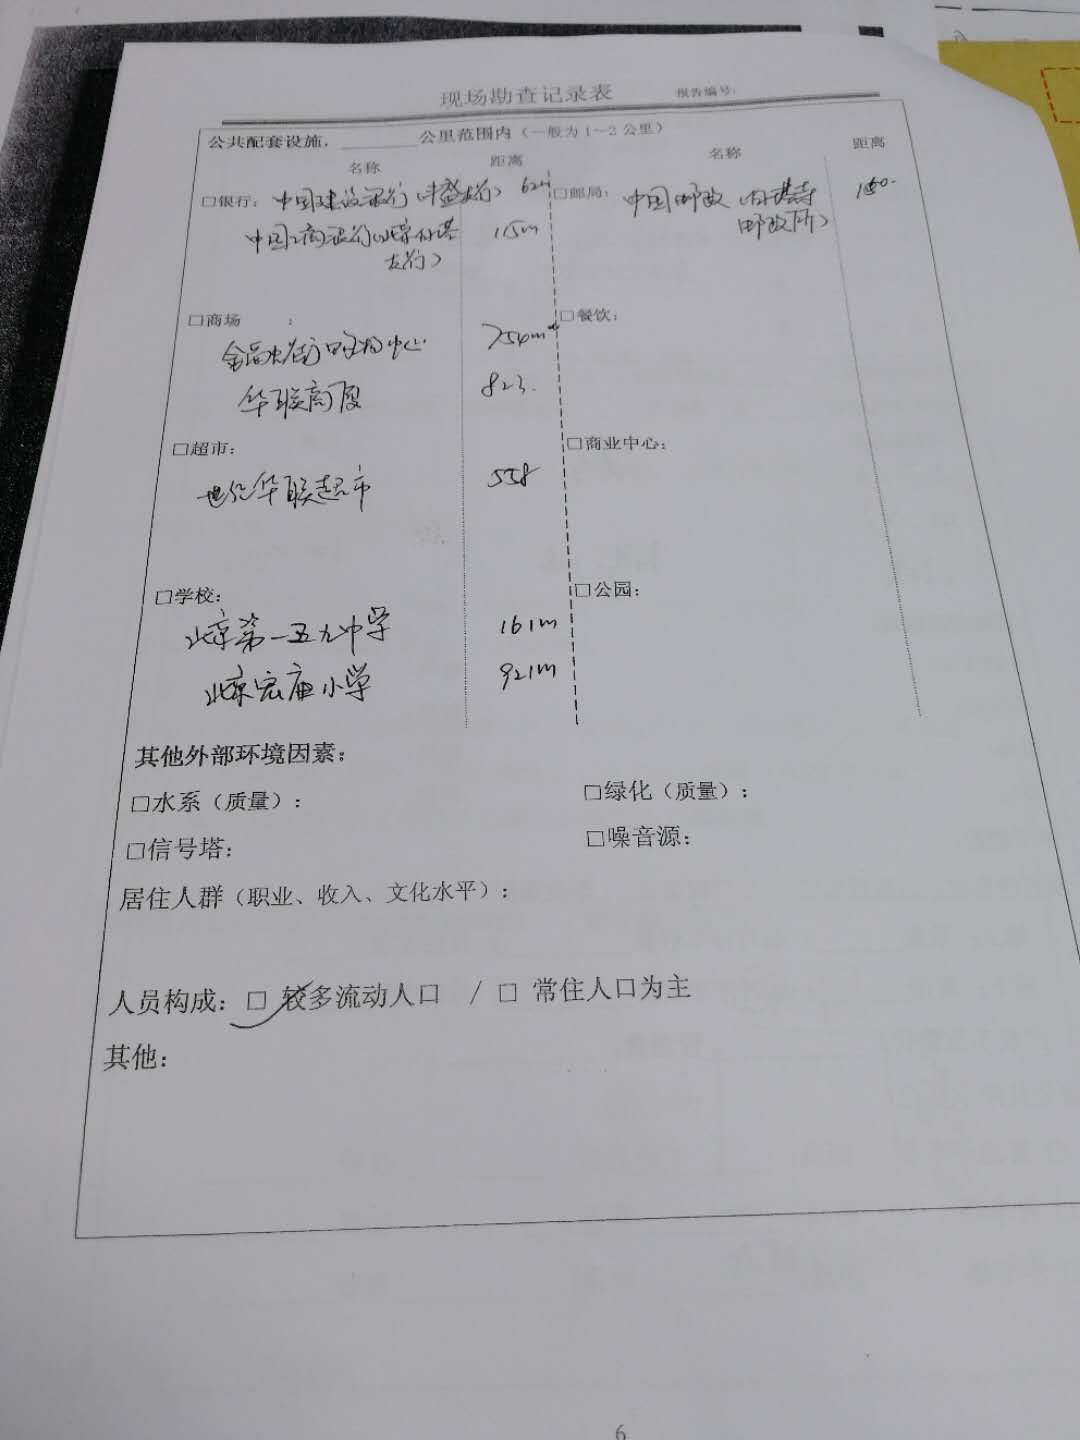 现场勘查记录表 报告编号:
公共配套设施,________公里范围内(一般为1~2公里)
名称 距离 名称 距离
□银行: 中国建设银行(丰盛支行) □邮局: 中国邮政(白塔寺
中国工商银行(北京白塔 115m 邮政所)
支行)
□商场 : □餐饮:
购物中心 754m
华联商厦 823.
□超市: □商业中心:
世纪华联超市 558
□学校: □公园:
北京第一五九中学 161m
北京宏庙小学 921m
其他外部环境因素:
□水系(质量): □绿化(质量):
□信号塔: □噪音源:
居住人群(职业、收入、文化水平):
人员构成: □ 较多流动人口 / □ 常住人口为主
其他:
6